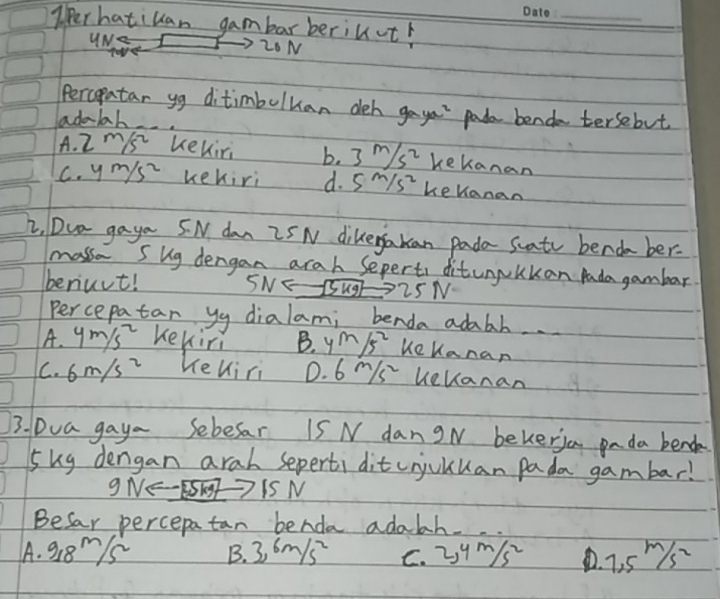 Date
1. Perhatikan gambar berikut!
4N 20 N
Percepatan yg ditimbulkan oleh gaya² pada benda tersebut
adalah....
A. 2 m/s² kekiri b. 3 m/s² kekanan
C. 4 m/s² kekiri d. 5 m/s² kekanan
2. Dua gaya 5N dan 25N dikerjakan pada suatu benda ber-
massa 5 kg dengan arah seperti ditunjukkan pada gambar
berikut! 5N 5kg 25 N
Percepatan yg dialami benda adalah....
A. 4m/s² kekiri B. 4m/s² kekanan
C. 6m/s² kekiri D. 6 m/s² kekanan
3. Dua gaya sebesar 15 N dan 9N bekerja pada benda
5 kg dengan arah seperti ditunjukkan pada gambar!
9N 5kg 15 N
Besar percepatan benda adalah....
A. 9,8 m/s² B. 3,6 m/s² C. 2,4 m/s² D. 1,5 m/s²